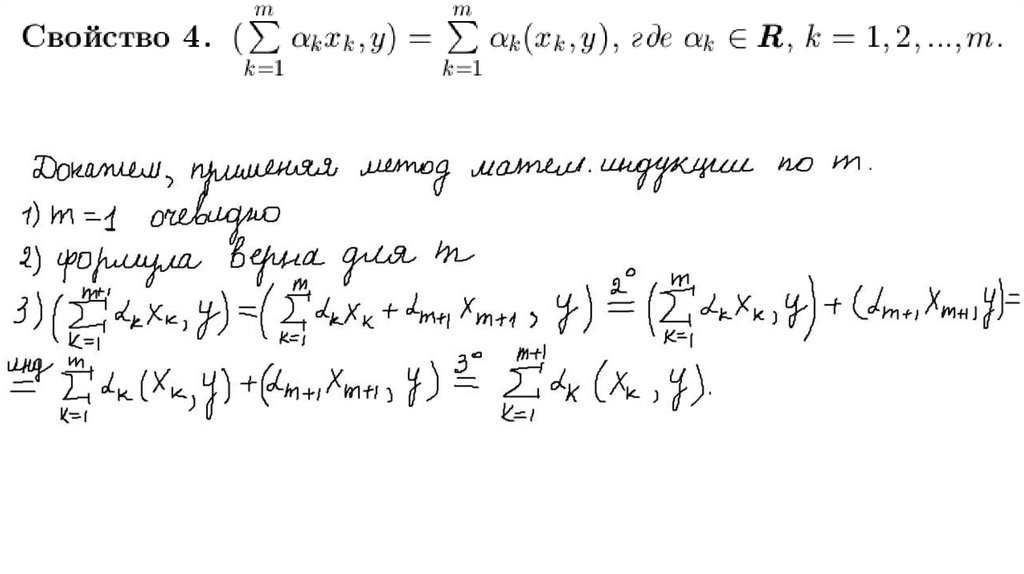 Свойство 4. (∑_{k=1}^{m} α_k x_k, y) = ∑_{k=1}^{m} α_k(x_k, y), где α_k ∈ R, k = 1, 2, ..., m.
Докажем, применяя метод матем. индукции по m.
1) m = 1 очевидно
2) формула верна для m
3) (∑_{k=1}^{m+1} α_k x_k, y) = (∑_{k=1}^{m} α_k x_k + α_{m+1} x_{m+1}, y) =^{2°} (∑_{k=1}^{m} α_k x_k, y) + (α_{m+1} x_{m+1}, y) =
=^{инд} ∑_{k=1}^{m} α_k (x_k, y) + (α_{m+1} x_{m+1}, y) =^{3°} ∑_{k=1}^{m+1} α_k (x_k, y).